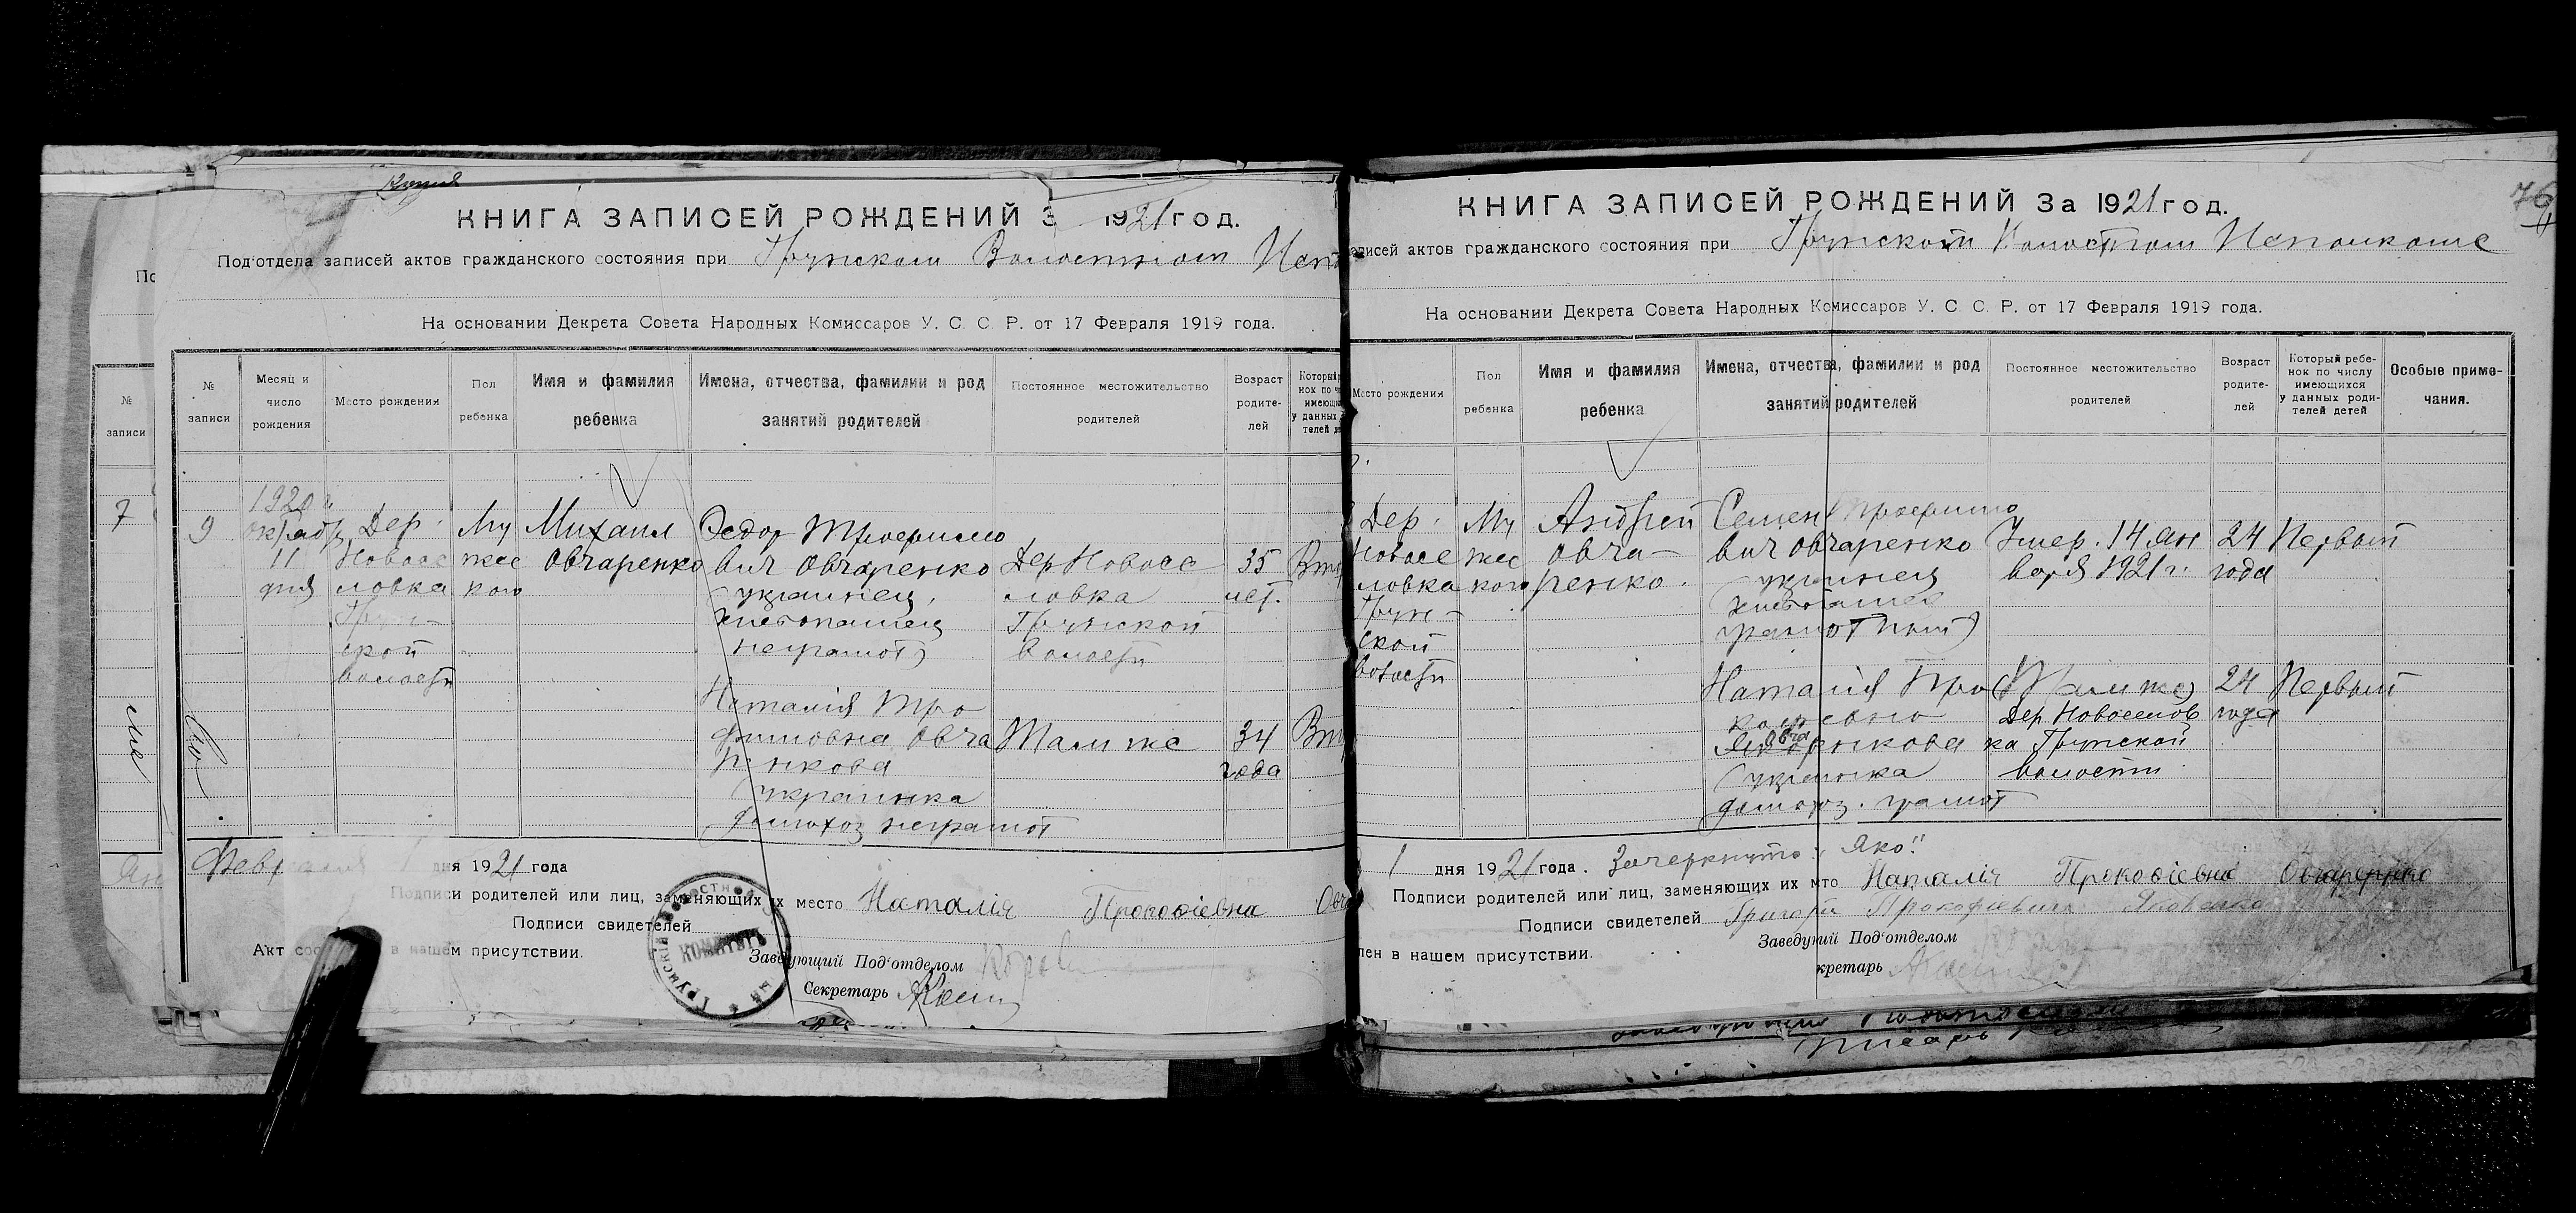 Копия
КНИГА ЗАПИСЕЙ РОЖДЕНИЙ З 1921 год.
Под'отдела записей актов гражданского состояния при Грунском Волостном Исп
На основании Декрета Совета Народных Комиссаров У. С. С. Р. от 17 Февраля 1919 года.
№ записи
Месяц и число рождения
Место рождения
Пол ребенка
Имя и фамилия ребенка
Имена, отчества, фамилии и род занятий родителей
Постоянное местожительство родителей
Возраст родите-лей
№ записи
7
9
1920 г.
октября
11
дня
Дер.
Новосе
ловка
Грун-
ской
волости
Му
жес
кого
Михаил
Овчаренко
Федор Трофимо
вич Овчаренко
(украинец,
хлебопашец
неграмот)
Дер Новосе
ловка
Грунской
волости
35
лет.
Наталия Тро
фимовна Овча
ренкова
(украинка
домохоз неграмот
Там же
34
года
Февраля 1 дня 1921 года
Подписи родителей или лиц, заменяющих их место Наталія Прокофіевна
Подписи свидетелей
Акт в нашем присутствии.
КОМИТЕТЪ
Заведующий Под'отделом
Секретарь
76
КНИГА ЗАПИСЕЙ РОЖДЕНИЙ За 1921 год.
записей актов гражданского состояния при Грунском Волостном Исполкоме
На основании Декрета Совета Народных Комиссаров У. С. С. Р. от 17 Февраля 1919 года.
Место рождения
Пол ребенка
Имя и фамилия ребенка
Имена, отчества, фамилии и род занятий родителей
Постоянное местожительство родителей
Возраст родите-лей
Который ребе-нок по числу имеющихся у данных роди-телей детей
Особые приме-чания.
Дер.
Новосе
ловка
Грун-
ской
волости
Му
жес
кого
Андрей
Овча-
ренко.
Семен Трофимо
вич Овчаренко
(украинец
хлебопашец
грамотный)
Умер. 14 Ян
варя 1921 г.
24
года
Первый
Наталия Про
кофьевна
Овча
ренкова
(украинка
домохоз. грамот
(Там же)
Дер Новоселов
ка Грунской
волости
24
года
Первый
1 дня 1921 года. Зачеркнуто: "Яко"
Подписи родителей или лиц, заменяющих их мто Наталія Прокофіевна Овчаренко
Подписи свидетелей Григорій Прокофіевич Яковенко
лен в нашем присутствии.
Заведующий Под'отделом
кретарь